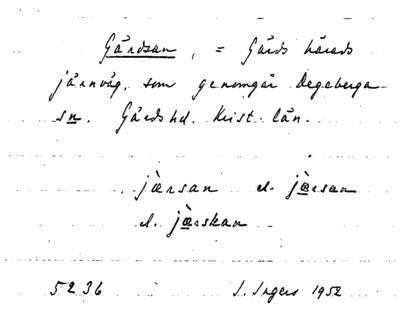 Gårdsan, = Gärds härads
järnväg, som genomgår Degeberga
sn. Gärds hd. Krist. län.
jàrsan el. jæ̀rsan
el. jæ̀rskan
5236 I. Ingers 1952